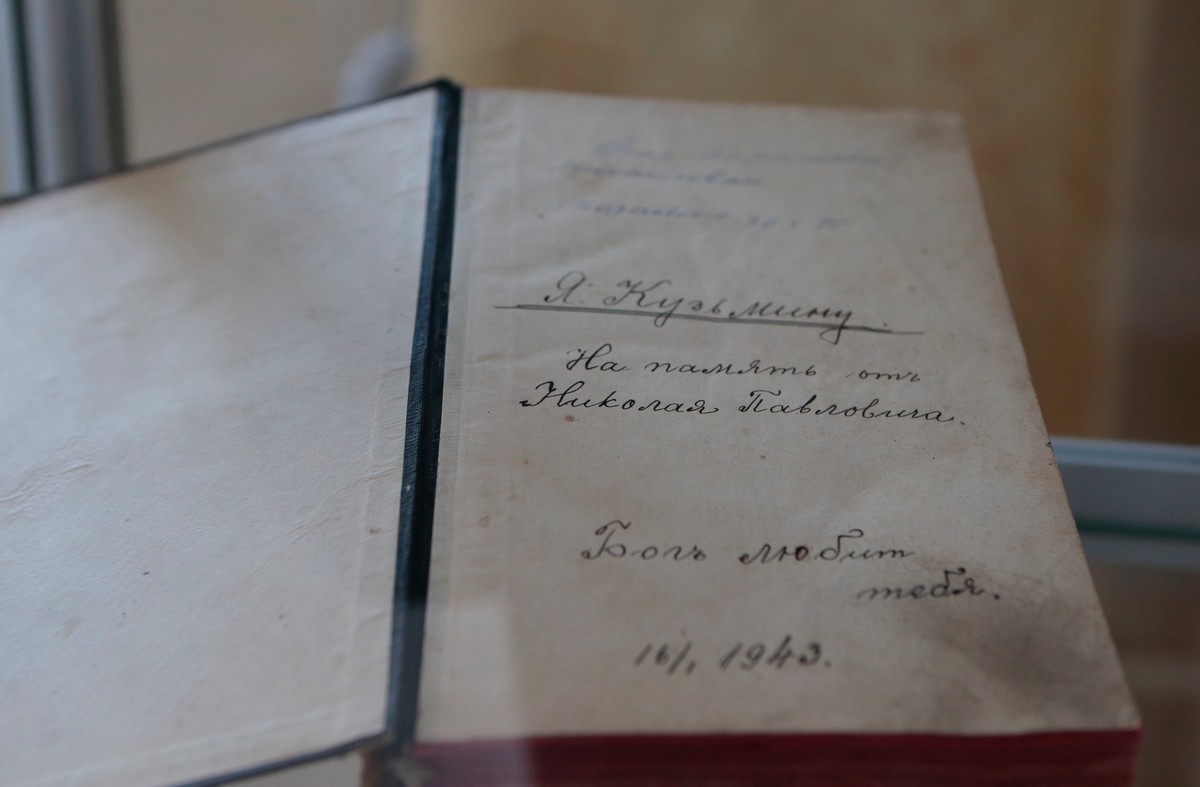 Я. Кузьмину.
На память отъ
Николая Павловича.
Богъ любит
тебя.
16/I 1943.